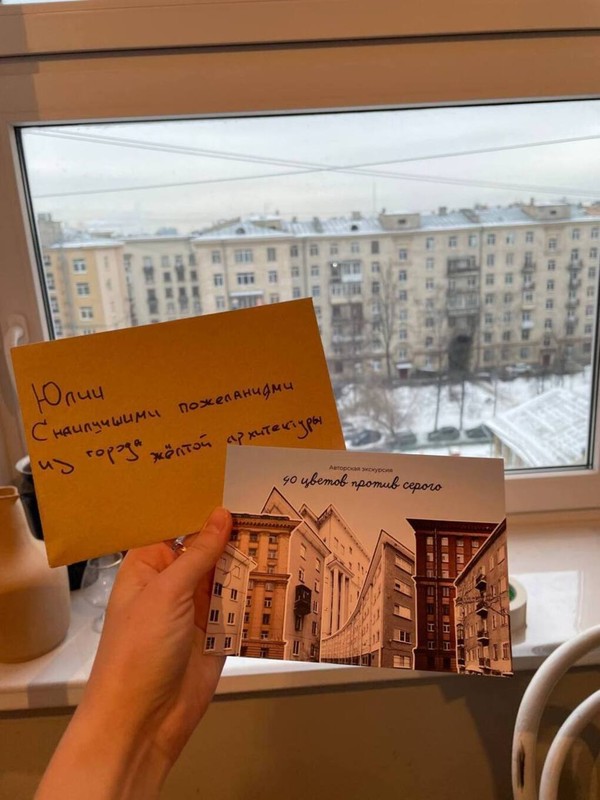 Юлии
С наилучшими пожеланиями
из города жёлтой архитектуры
Авторская экскурсия
40 цветов против серого